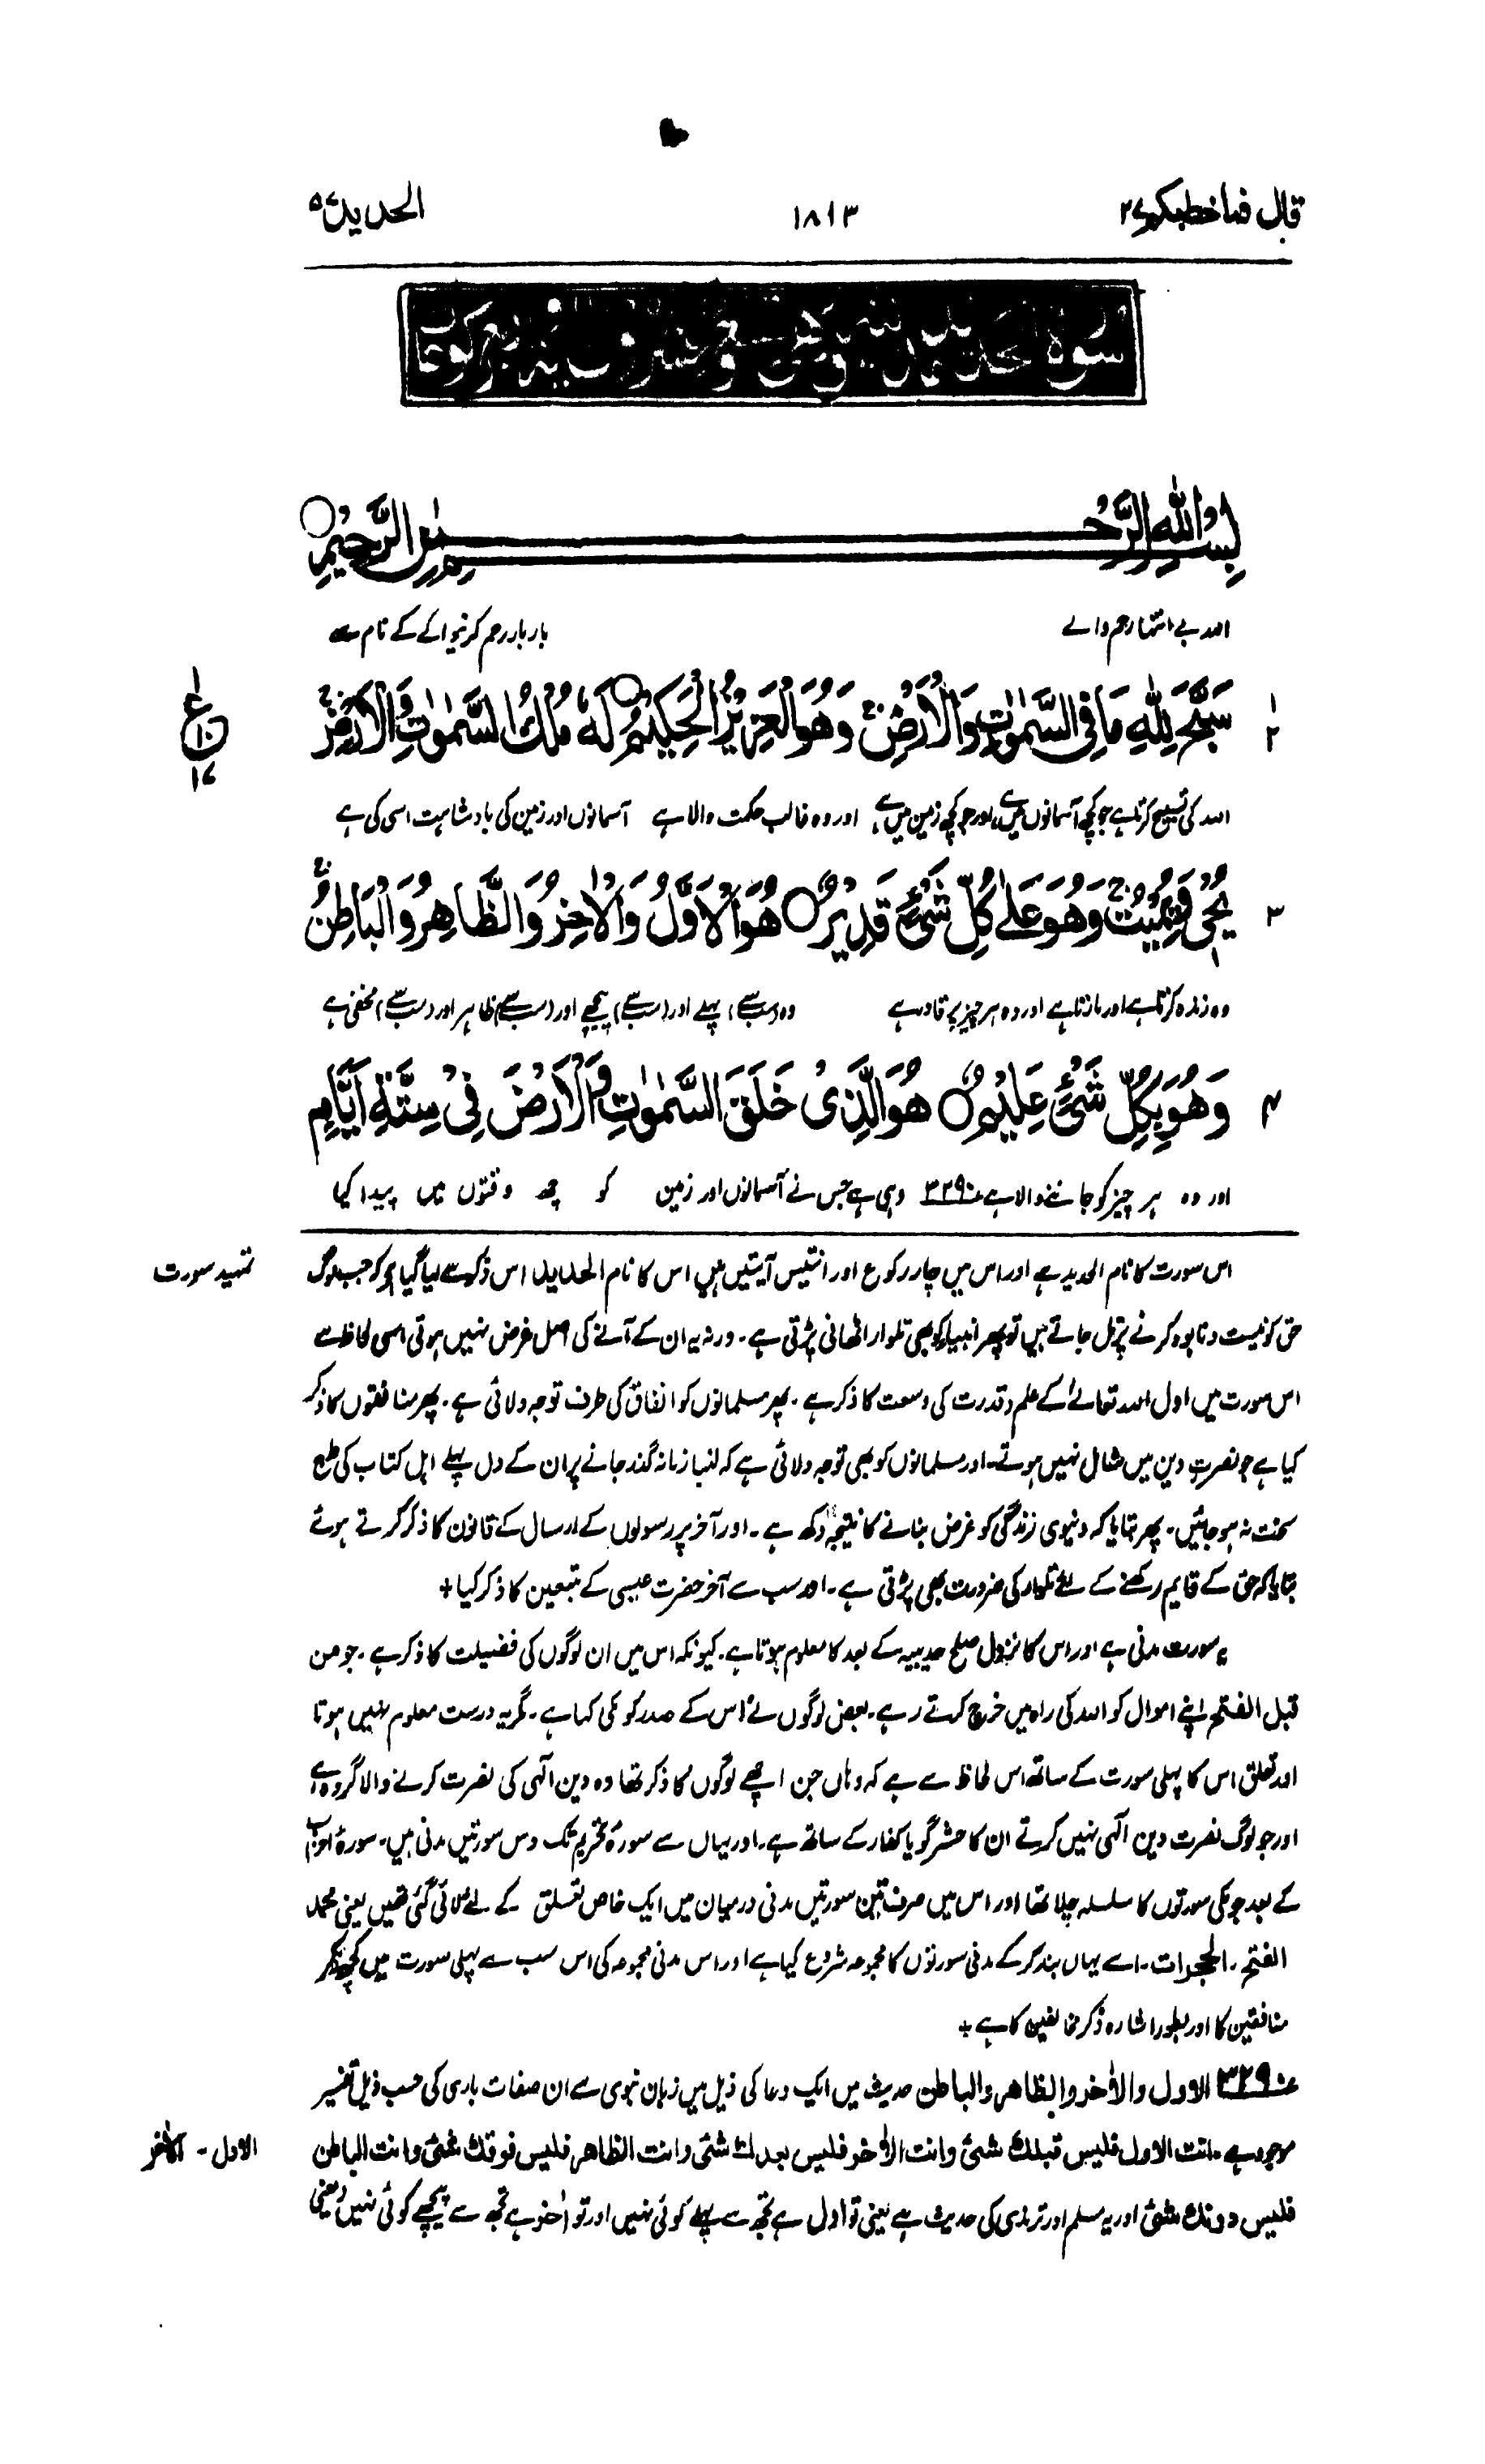 قال فما خطبکم ۲۷
۱۸۱۳
الحدید ۵۷
بِسْمِ اللّٰهِ الرَّحْمٰنِ الرَّحِیْمِ
اللہ بے انتہا رحم والے بار بار رحم کرنیوالے کے نام سے
سَبَّحَ لِلّٰهِ مَا فِی السَّمٰوٰتِ وَالْاَرْضِ ۚ وَهُوَ الْعَزِیْزُ الْحَكِیْمُ ○ لَهٗ مُلْكُ السَّمٰوٰتِ وَالْاَرْضِ ۚ
۱
۲
ع
۱۰
۱۷
اللہ کی تسبیح کرتا ہے جو کچھ آسمانوں میں ہے اور جو کچھ زمین میں ہے اور وہ غالب حکمت والا ہے آسمانوں اور زمین کی بادشاہت اسی کی ہے
یُحْیٖ وَیُمِیْتُ ۚ وَهُوَ عَلٰى كُلِّ شَیْءٍ قَدِیْرٌ ○ هُوَ الْاَوَّلُ وَالْاٰخِرُ وَالظَّاهِرُ وَالْبَاطِنُ ۚ
۳
وہ زندہ کرتا ہے اور مارتا ہے اور وہ ہر چیز پر قادر ہے وہ (سب سے) پہلے اور (سب سے) پیچھے اور (سب سے) ظاہر اور (سب سے) مخفی ہے
وَهُوَ بِكُلِّ شَیْءٍ عَلِیْمٌ ○ هُوَ الَّذِیْ خَلَقَ السَّمٰوٰتِ وَالْاَرْضَ فِیْ سِتَّةِ اَیَّامٍ
۴
اور وہ ہر چیز کو جاننے والا ہے ۳۲۹۰ وہی ہے جس نے آسمانوں اور زمین کو چھ وقتوں میں پیدا کیا
تمہید سورت
اس سورت کا نام الحدید ہے اور اس میں چار رکوع اور انتیس آیتیں ہیں اس کا نام الحدید اس ذکر سے لیا گیا ہے کہ جب لوگ
حق کو نیست و نابود کرنے پر تل جاتے ہیں تو پھر انبیاء کو بھی تلوار اٹھانی پڑتی ہے۔ ورنہ یہ ان کے آنے کی اصل غرض نہیں ہوتی اسی لحاظ سے
اس سورت میں اول اللہ تعالےٰ کے علم و قدرت کی وسعت کا ذکر ہے۔ پھر مسلمانوں کو انفاق کی طرف توجہ دلائی ہے۔ پھر منافقوں کا ذکر
کیا ہے جو نصرتِ دین میں شامل نہیں ہوتے۔ اور مسلمانوں کو بھی توجہ دلائی ہے کہ لنبا زمانہ گذر جانے پر ان کے دل پہلے اہل کتاب کی طرح
سخت نہ ہو جائیں۔ پھر بتایا کہ دنیوی زندگی کو غرض بنانے کا نتیجہ دکھ ہے۔ اور آخر پر رسولوں کے ارسال کے قانون کا ذکر کرتے ہوئے
بتایا کہ حق کے قایم رکھنے کے لئے تلوار کی ضرورت بھی پڑتی ہے۔ اور سب سے آخر حضرت عیسیٰ کے متبعین کا ذکر کیا +
یہ سورت مدنی ہے اور اس کا نزول صلح حدیبیہ کے بعد کا معلوم ہوتا ہے۔ کیونکہ اس میں ان لوگوں کی فضیلت کا ذکر ہے۔ جو من
قبل الفتح اپنے اموال کو اللہ کی راہ میں خرچ کرتے رہے۔ بعض لوگوں نے اس کے صدر کو مکی کہا ہے۔ مگر یہ درست معلوم نہیں ہوتا
اور تعلق اس کا پہلی سورت کے ساتھ اس لحاظ سے ہے کہ وہاں جن اچھے لوگوں کا ذکر تھا وہ دین الٰہی کی نصرت کرنے والا گروہ ہے
اور جو لوگ نصرت دین الٰہی نہیں کرتے ان کا حشر گویا کفار کے ساتھ ہے۔ اور یہاں سے سورۂ تحریم تک دس سورتیں مدنی ہیں۔ سورۂ احزاب
کے بعد جو مکی سورتوں کا سلسلہ چلا تھا اور اس میں صرف تین سورتیں مدنی درمیان میں ایک خاص تعلق کے لئے لائی گئی تھیں یعنی محمد
الفتح۔ الحجرات۔ اسے یہاں بند کر کے مدنی سورتوں کا مجموعہ شروع کیا ہے اور اس مدنی مجموعہ کی اس سب سے پہلی سورت میں کچھ ذکر
منافقین کا اور بطور اشارہ ذکر مخالفین کا ہے +
۳۲۹۰ الاول والاٰخر والظاهر والباطن حدیث میں ایک دعا کی ذیل میں زبان نبوی سے ان صفات باری کی حسب ذیل تفسیر
الاول۔ الاٰخر
موجود ہے۔ انت الاول فلیس قبلك شئ وانت الاٰخر فلیس بعدك شئ وانت الظاهر فلیس فوقك شئ وانت الباطن
فلیس دونك شئ اور یہ مسلم اور ترمذی کی حدیث ہے یعنی تو اول ہے تجھ سے پہلے کوئی نہیں اور تو اٰخر ہے تجھ سے پیچھے کوئی نہیں (یعنی